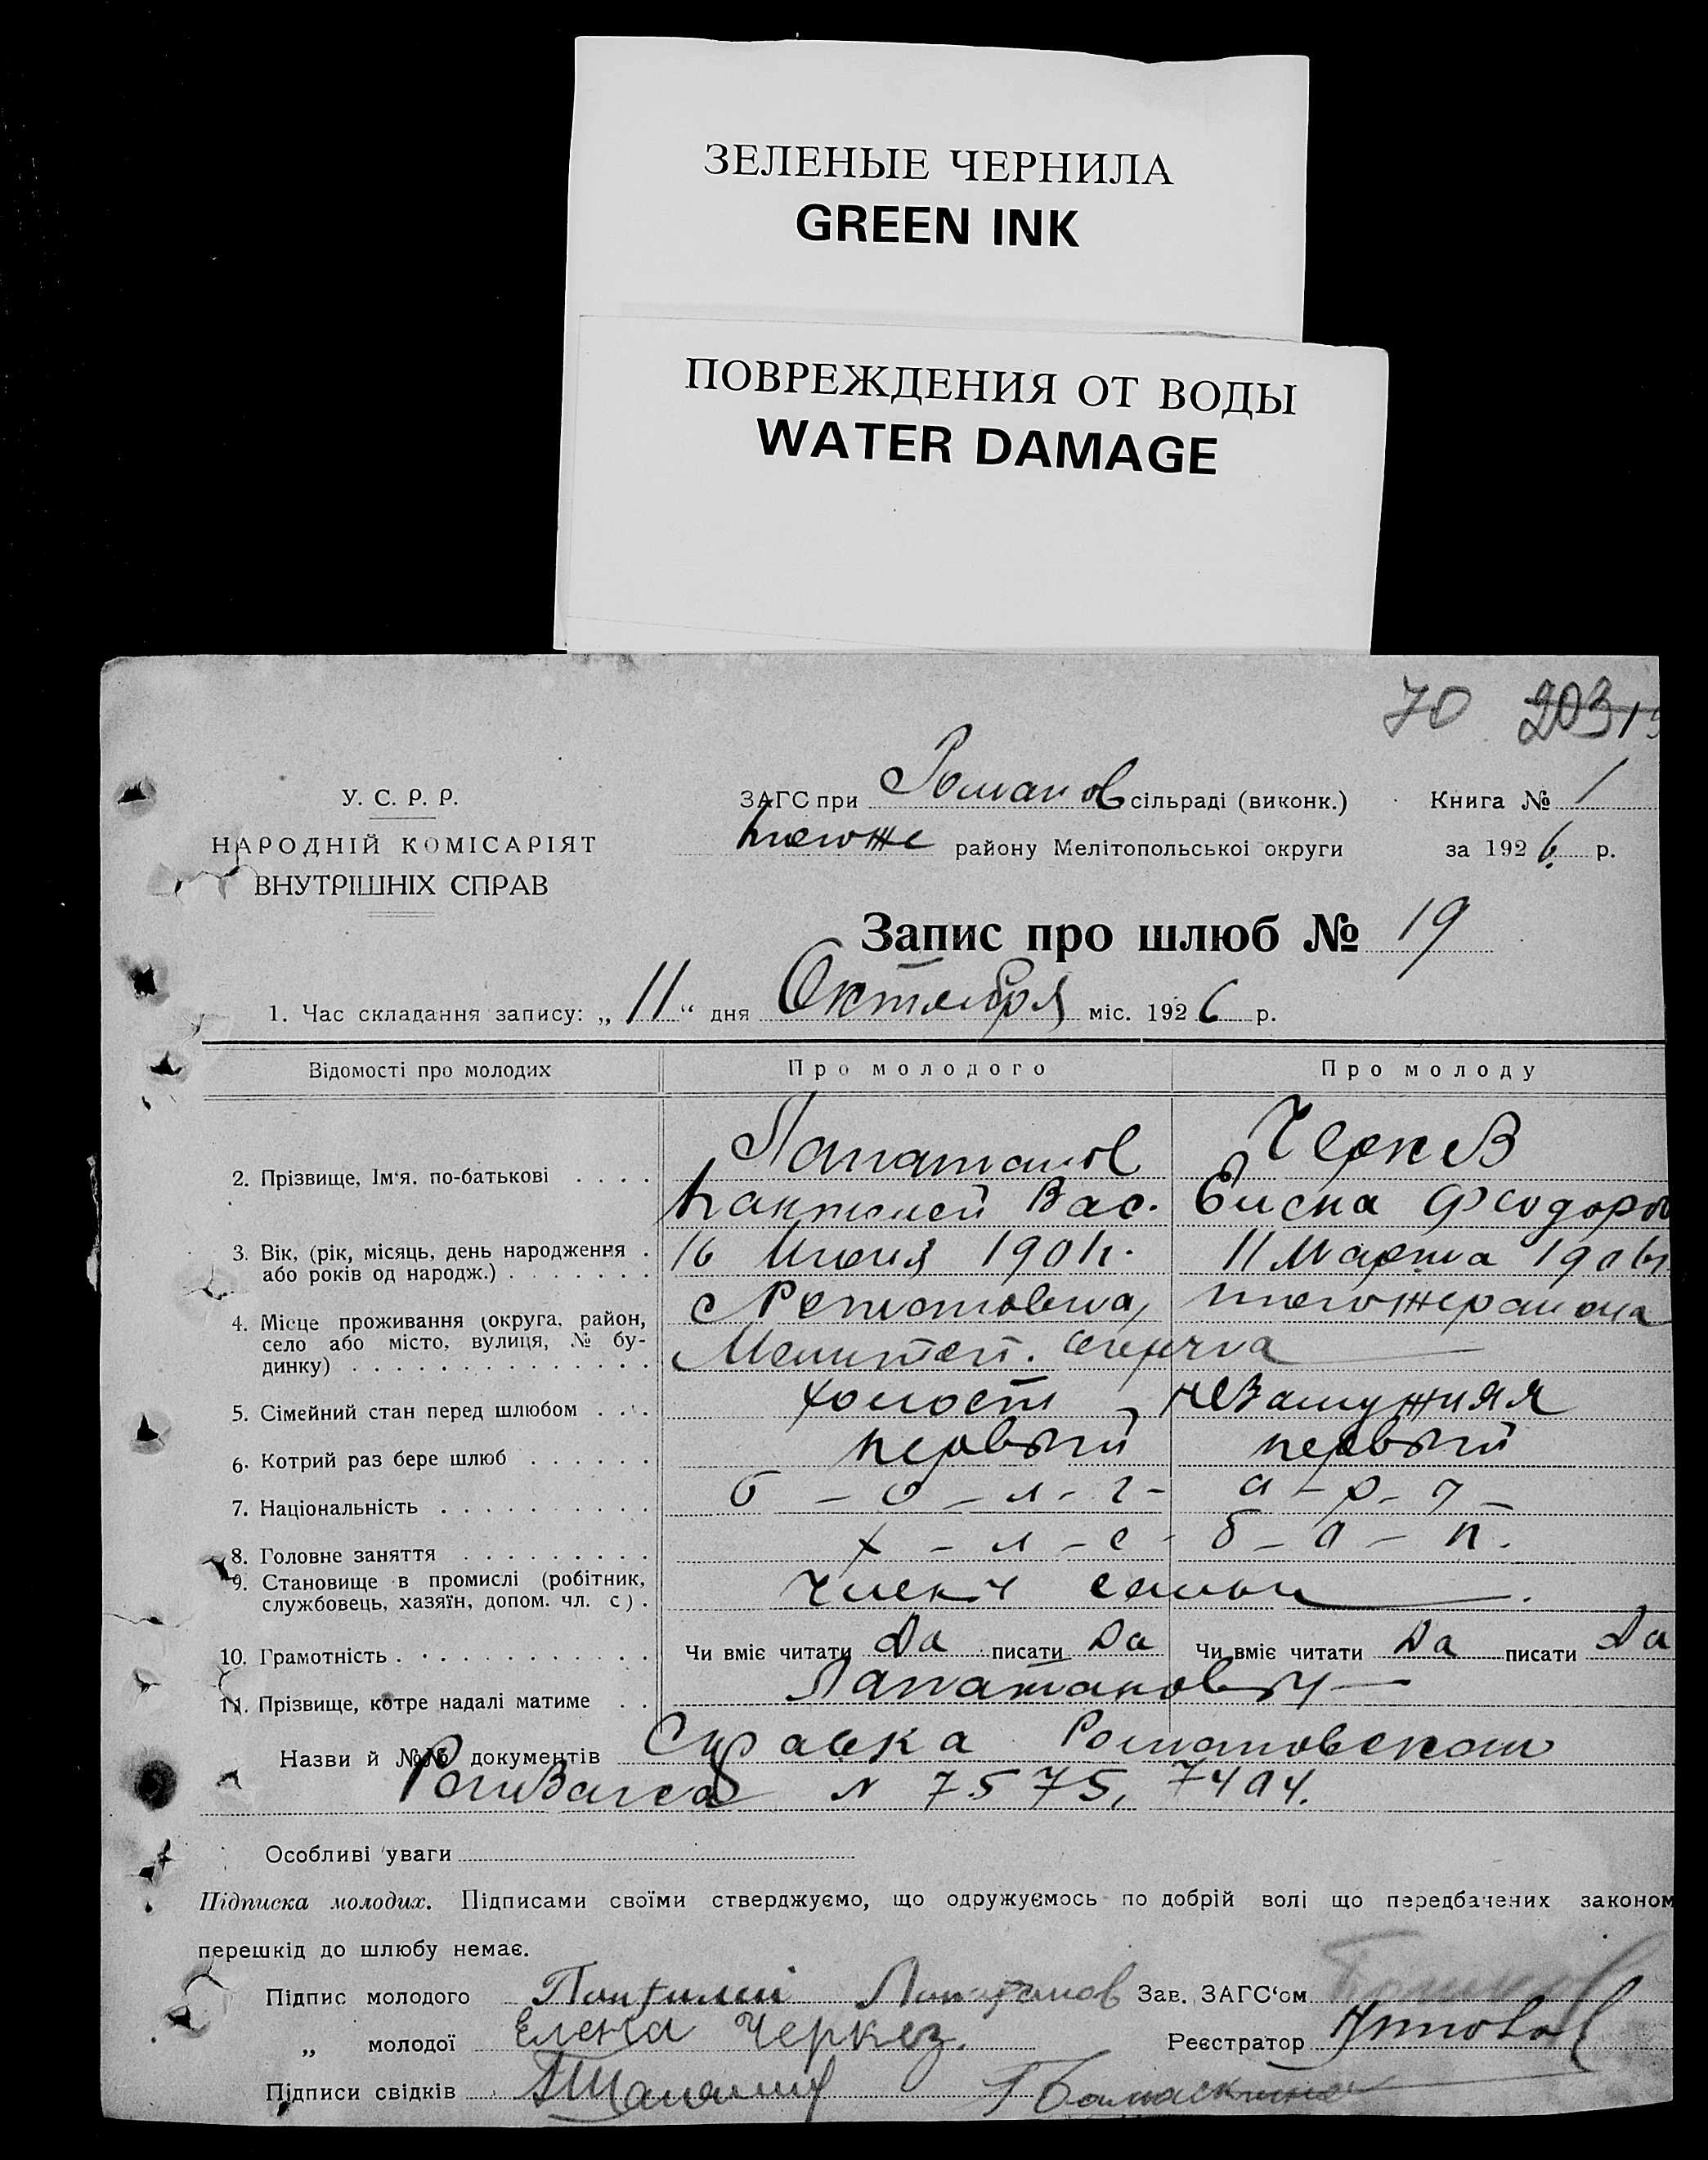 ЗЕЛЕНЫЕ ЧЕРНИЛА
GREEN INK
ПОВРЕЖДЕНИЯ ОТ ВОДЫ
WATER DAMAGE
70 203
У. С. Р. Р.
НАРОДНІЙ КОМІСАРІЯТ
ВНУТРІШНІХ СПРАВ
ЗАГС при Романов сільраді (виконк.) Книга № 1
тогоже району Мелітопольської округи за 1926 р.
Запис про шлюб № 19
1. Час складання запису: „11“ дня Октября міс. 1926 р.
Відомості про молодих Про молодого Про молоду
2. Прізвище, Ім'я, по-батькові
Папатанов
Пантилей Вас. Феодоров
3. Вік, (рік, місяць, день народження 16 190 11 Марта 190
або років од народж.)
4. Місце проживання (округа, район, тогожерайона
село або місто, вулиця, № бу-
динку)
5. Сімейний стан перед шлюбом холост незамужняя
6. Котрий раз бере шлюб первый первый
7. Національність б-о-л-г- а-р-
8. Головне заняття х-л-е-б-о-п.
9. Становище в промислі (робітник,
службовець, хазяїн, допом. чл. с.) член семьи
10. Грамотність Чи вміє читати Да писати Да Чи вміє читати Да писати Да
11. Прізвище, котре надалі матиме Папатановы
Назви й №№ документів Справка Романовского
N 7575, 7494.
Особливі уваги
Підписка молодих. Підписами своїми стверджуємо, що одружуємось по добрій волі що передбачених законом
перешкід до шлюбу немає.
Підпис молодого Пантилей Папатанов Зав. ЗАГС'ом
„ молодої Елена Черкез. Реєстратор
Підписи свідків